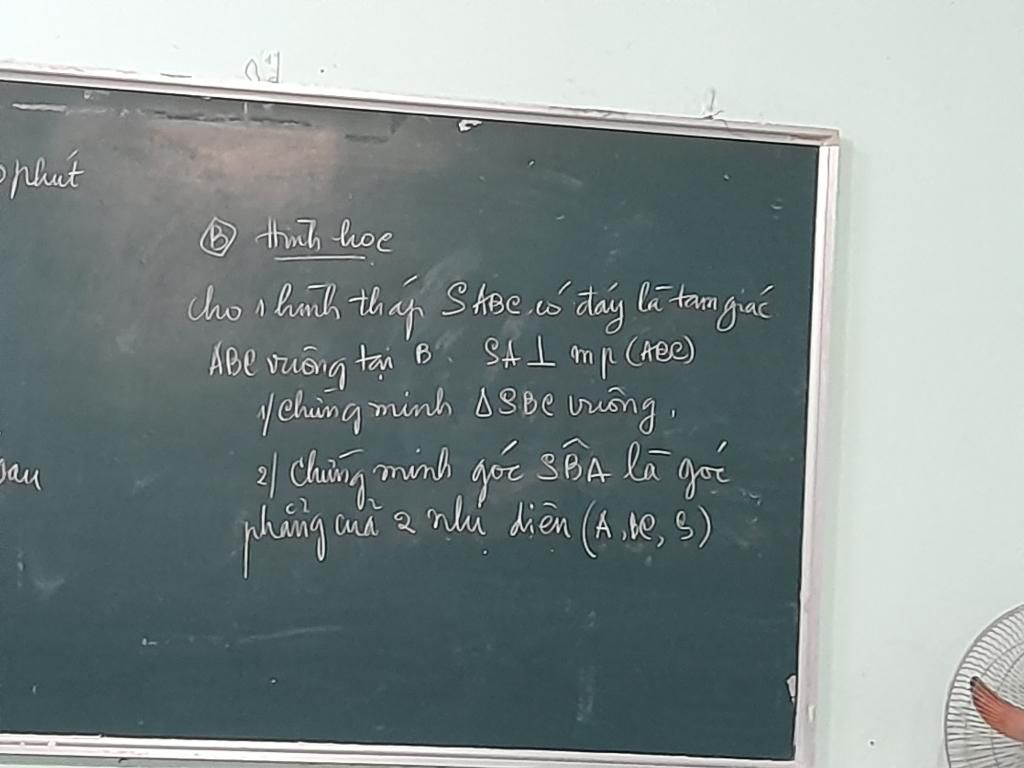 phút
B Hình học
Cho 1 hình tháp SABC có đáy là tam giác
ABC vuông tại B. SA⊥ mp (ABC)
1/ Chứng minh ΔSBC vuông.
2/ Chứng minh góc SB̂A là góc
phẳng của 2 nhị diện (A, BC, S)